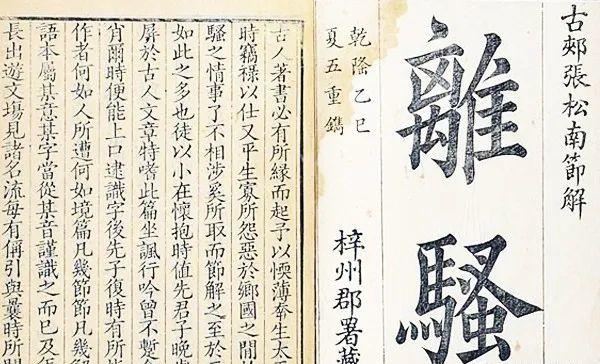 古郟張松南節解
離騷
乾隆乙巳
夏五重鐫
梓州郡署藏
古人著書必有所緣而起予以愞薄幸生太
時竊祿以仕又平生寡所怨惡於鄉國之閒
騷之情事了不相涉奚所取而節解之至於
如此之多也徒以小在懷抱時值先君子晚
屏於古人文章特嗜此篇坐諷行吟曾不暫
肖爾時便能上口逮識字後先子復時有所
作者何如人所遭何如境篇凡幾節節凡幾
語本屬某意某字當從某音謹識之而已及
長出遊文場見諸名流每有稱引與曩時所